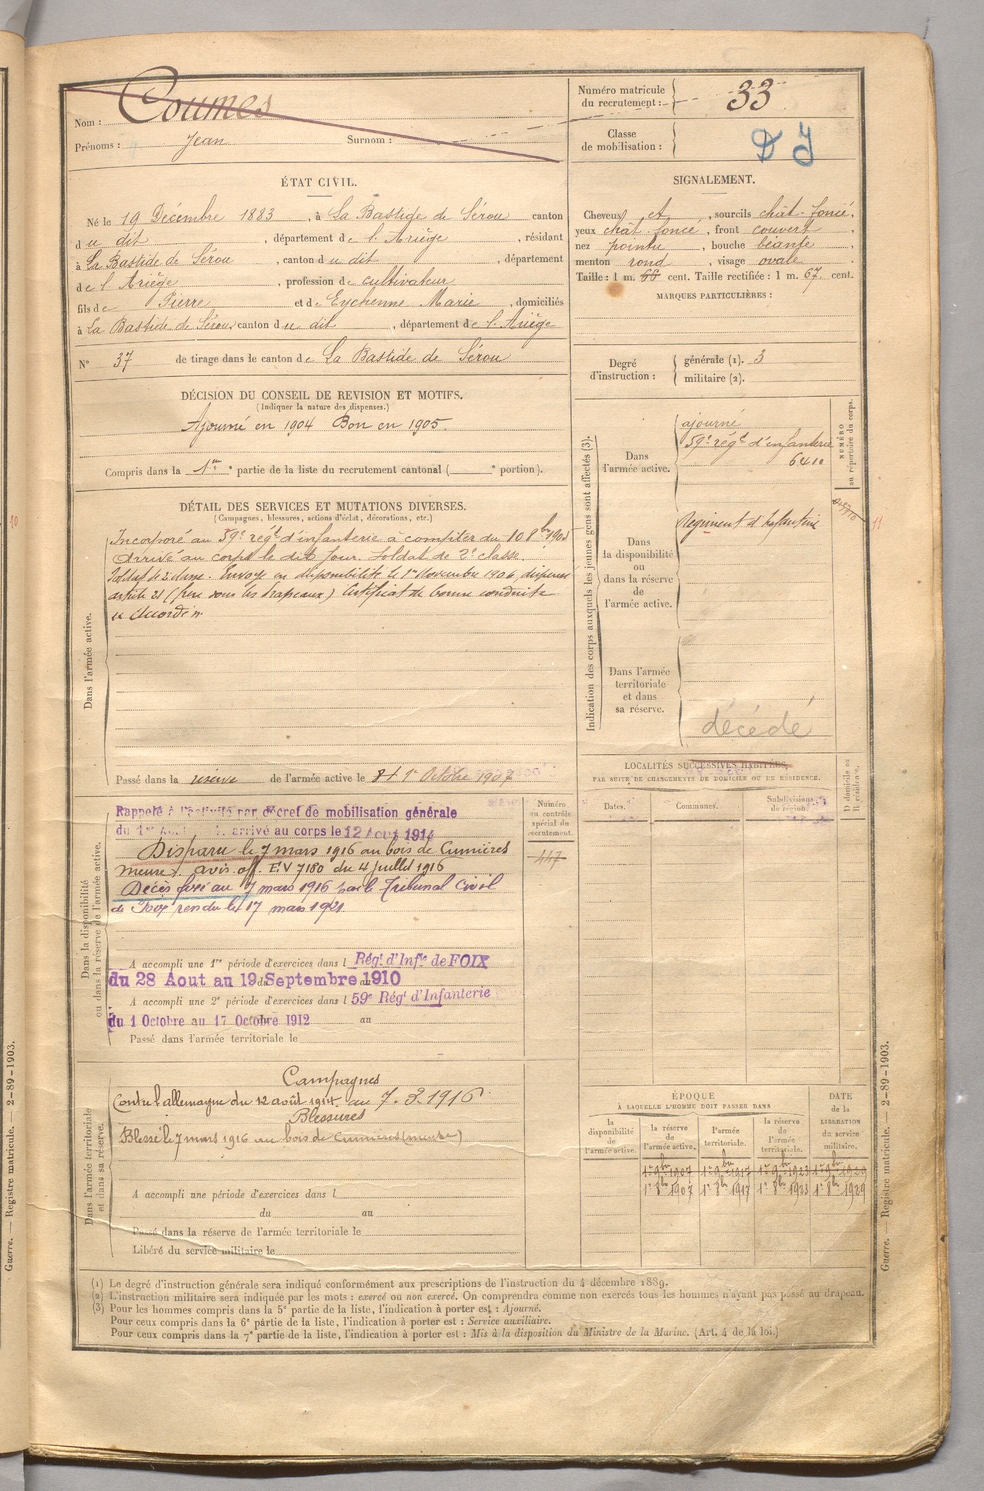 Nom : Coumes
Prénoms : Jean Surnom :
Numéro matricule du recrutement : 33
Classe de mobilisation : DJ
ÉTAT CIVIL.
Né le 19 Décembre 1883, à La Bastide de Sérou canton
du dit, département de l'Ariège, résidant
à La Bastide de Sérou, canton du dit, département
de l'Ariège, profession de cultivateur
fils de Pierre et de Eychenne Marie, domiciliés
à La Bastide de Sérou canton du dit, département de l'Ariège
N° 37 de tirage dans le canton de La Bastide de Sérou
SIGNALEMENT.
Cheveux et, sourcils chât. foncé.
yeux chât. foncé, front couvert
nez pointu, bouche béante,
menton rond, visage ovale
Taille : 1 m. 66 cent. Taille rectifiée : 1 m. 67 cent.
MARQUES PARTICULIÈRES :
Degré d'instruction : générale (1). 3
militaire (2).
DÉCISION DU CONSEIL DE REVISION ET MOTIFS.
(Indiquer la nature des dispenses.)
Ajourné en 1904 Bon en 1905.
Compris dans la 1re partie de la liste du recrutement cantonal ( e portion).
DÉTAIL DES SERVICES ET MUTATIONS DIVERSES.
(Campagnes, blessures, actions d'éclat, décorations, etc.)
Dans l'armée active.
Incorporé au 59e régt d'infanterie à compter du 10 8bre 1905
Arrivé au corps le dit jour. Soldat de 2e classe.
Soldat de 2e classe. Envoyé en disponibilité le 1er Novembre 1906, dispensé
article 21 (frère sous les drapeaux) Certificat de bonne conduite
Passé dans la réserve de l'armée active le 1er Octobre 1907
Indication des corps auxquels les jeunes gens sont affectés (3).
NUMÉRO au répertoire du corps.
Dans l'armée active.
ajourné
59e régt d'infanterie
6410
Dans la disponibilité ou dans la réserve de l'armée active.
Régiment d'Infanterie
Dans l'armée territoriale et dans sa réserve.
décédé
10
11
Dans la disponibilité ou dans la réserve de l'armée active.
Rappelé à l'activité par décret de mobilisation générale
du 1er arrivé au corps le 12 Aout 1914
Disparu le 7 mars 1916 au bois de Cumières
meuse) avis off. EV 7180 du 4 juillet 1916
Décès fixé au 7 mars 1916 par le Tribunal Civil
de Foix rendu le 17 mars 1921.
Numéro au contrôle spécial du recrutement.
447
A accompli une 1re période d'exercices dans l Régt d'Infie de FOIX
du 28 Aout au 19 Septembre 1910
A accompli une 2e période d'exercices dans l 59e Régt d'Infanterie
du 1 Octobre au 17 Octobre 1912 au
Passé dans l'armée territoriale le
LOCALITÉS SUCCESSIVES HABITÉES,
PAR SUITE DE CHANGEMENTS DE DOMICILE OU DE RÉSIDENCE.
Dates. Communes. Subdivisions de région.
D domicile ou R résidence.
Dans l'armée territoriale et dans sa réserve.
Campagnes
Contre l'allemagne du 12 août 1914 au 7.3.1916
Blessures
Blessé le 7 mars 1916 au bois de Cumières (meuse)
A accompli une période d'exercices dans l
du au
Passé dans la réserve de l'armée territoriale le
Libéré du service militaire le
ÉPOQUE
À LAQUELLE L'HOMME DOIT PASSER DANS
la disponibilité de l'armée active.
la réserve de l'armée active.
l'armée territoriale.
la réserve de l'armée territoriale.
DATE de la LIBÉRATION du service militaire.
1er 9bre 1907 1er 9bre 1917 1er 9bre 1923 1er 9bre 1929
1er 8bre 1907 1er 8bre 1917 1er 8bre 1923 1er 8bre 1929
(1) Le degré d'instruction générale sera indiqué conformément aux prescriptions de l'instruction du 4 décembre 1889.
(2) L'instruction militaire sera indiquée par les mots : exercé ou non exercé. On comprendra comme non exercés tous les hommes n'ayant pas passé au drapeau.
(3) Pour les hommes compris dans la 5e partie de la liste, l'indication à porter est : Ajourné.
Pour ceux compris dans la 6e partie de la liste, l'indication à porter est : Service auxiliaire.
Pour ceux compris dans la 7e partie de la liste, l'indication à porter est : Mis à la disposition du Ministre de la Marine. (Art. 4 de la loi.)
Guerre. — Registre matricule. — 2-89-1903.
Guerre. — Registre matricule. — 2-89-1903.